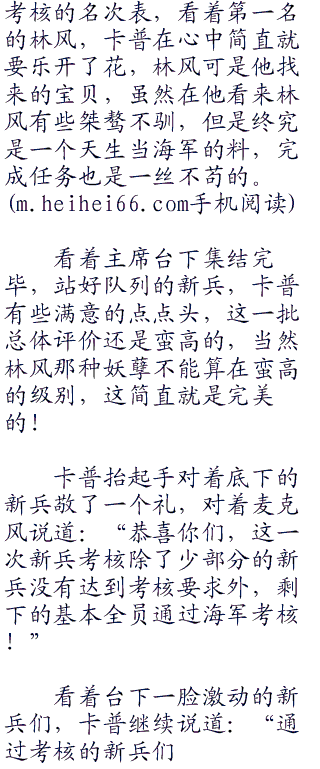 考核的名次表，看着第一名
的林风，卡普在心中简直就
要乐开了花，林风可是他找
来的宝贝，虽然在他看来林
风有些桀骜不驯，但是终究
是一个天生当海军的料，完
成任务也是一丝不苟的。
(m.heihei66.com手机阅读)
看着主席台下集结完
毕，站好队列的新兵，卡普
有些满意的点点头，这一批
总体评价还是蛮高的，当然
林风那种妖孽不能算在蛮高
的级别，这简直就是完美
的！
卡普抬起手对着底下的
新兵敬了一个礼，对着麦克
风说道：“恭喜你们，这一
次新兵考核除了少部分的新
兵没有达到考核要求外，剩
下的基本全员通过海军考核
！”
看着台下一脸激动的新
兵们，卡普继续说道：“通
过考核的新兵们